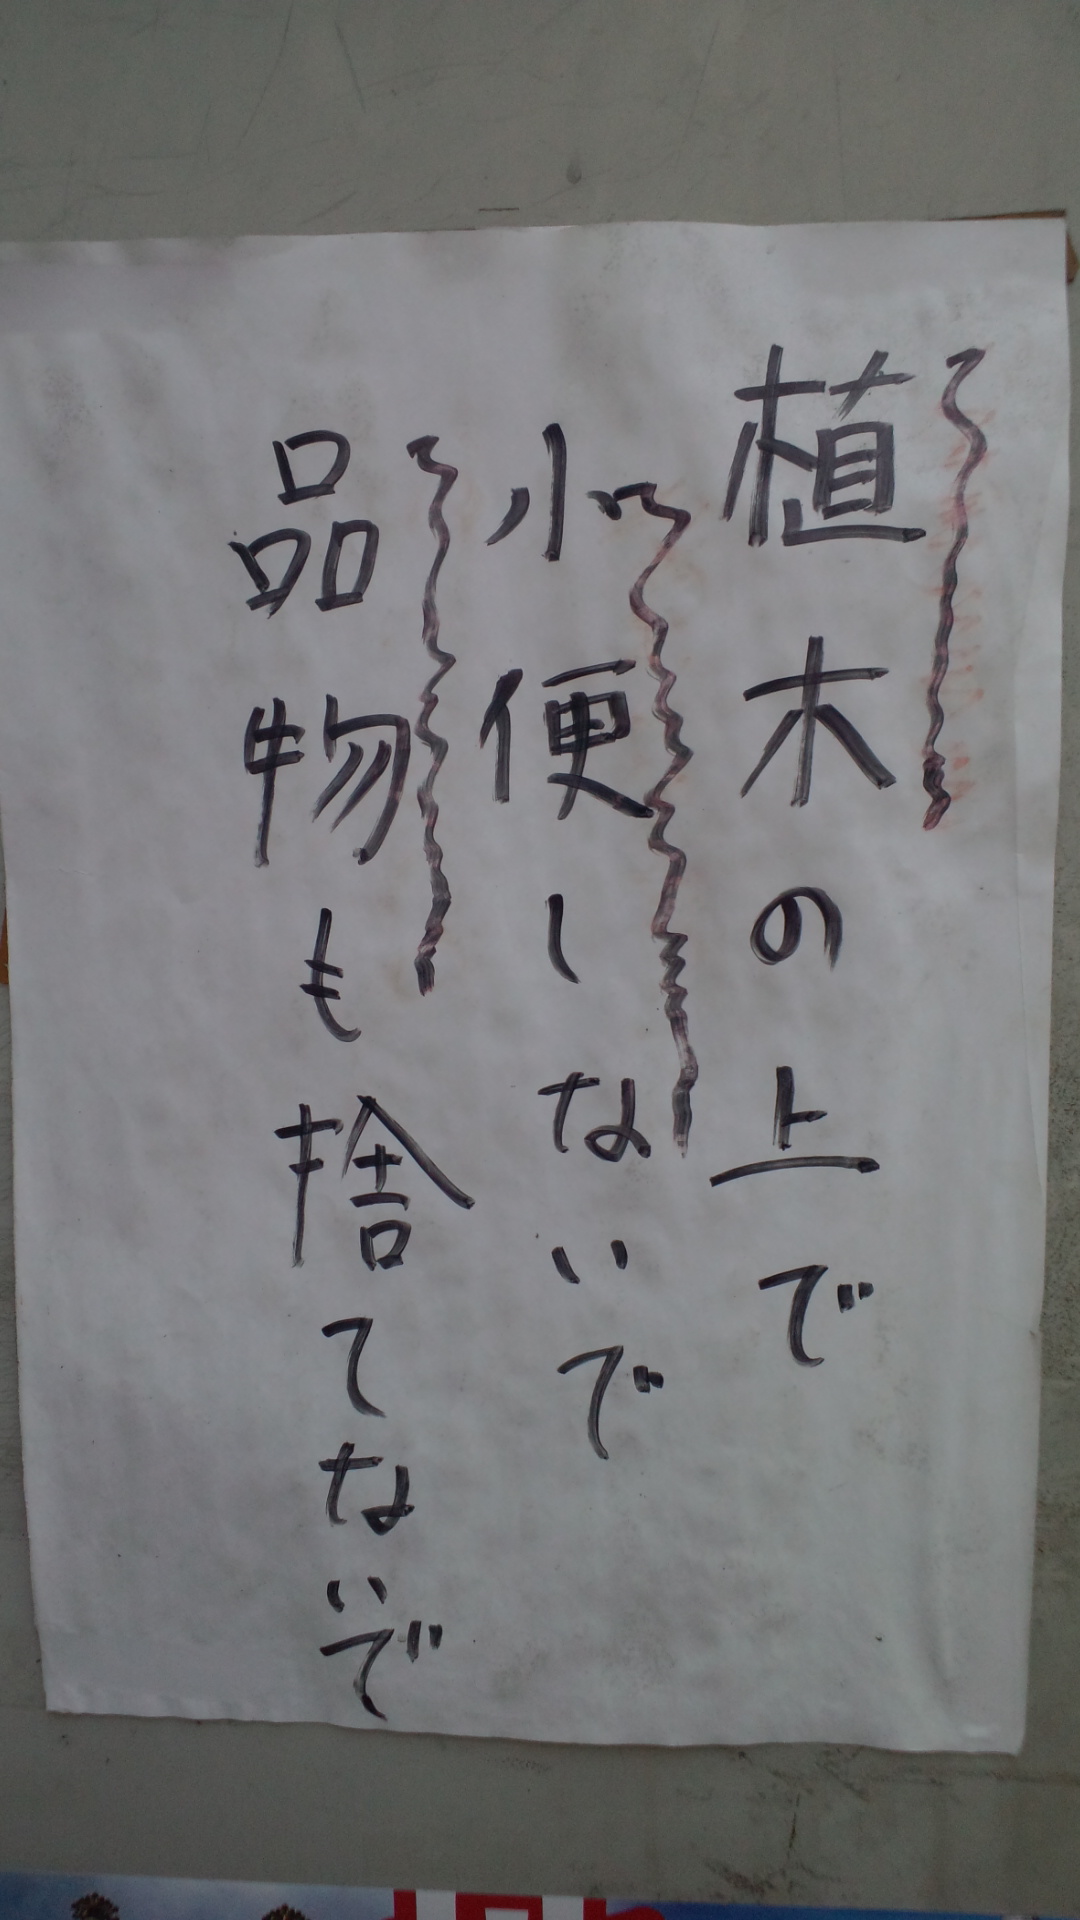 植木の上で
小便しないで
品物も捨てないで